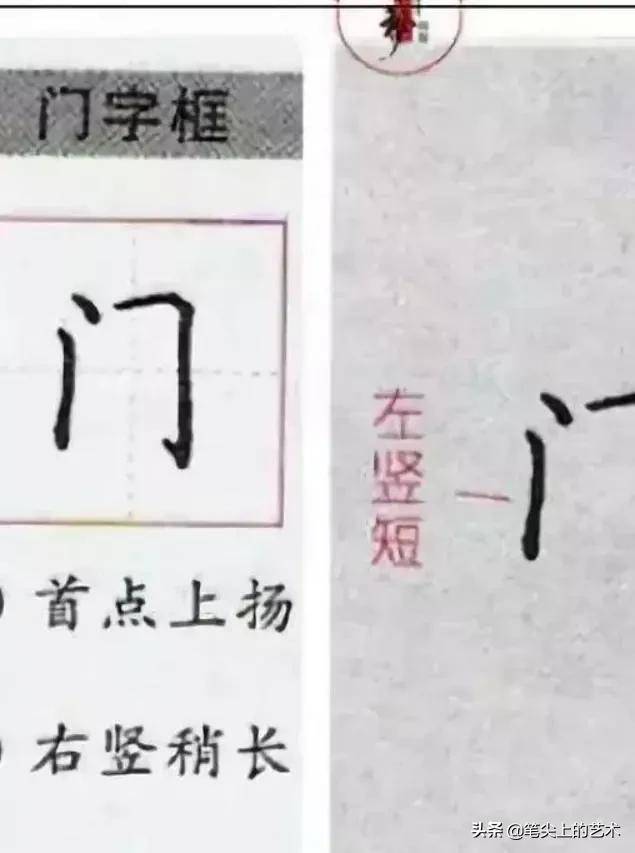 门字框
门
首点上扬
右竖稍长
左竖短
门
头条 @笔尖上的艺术